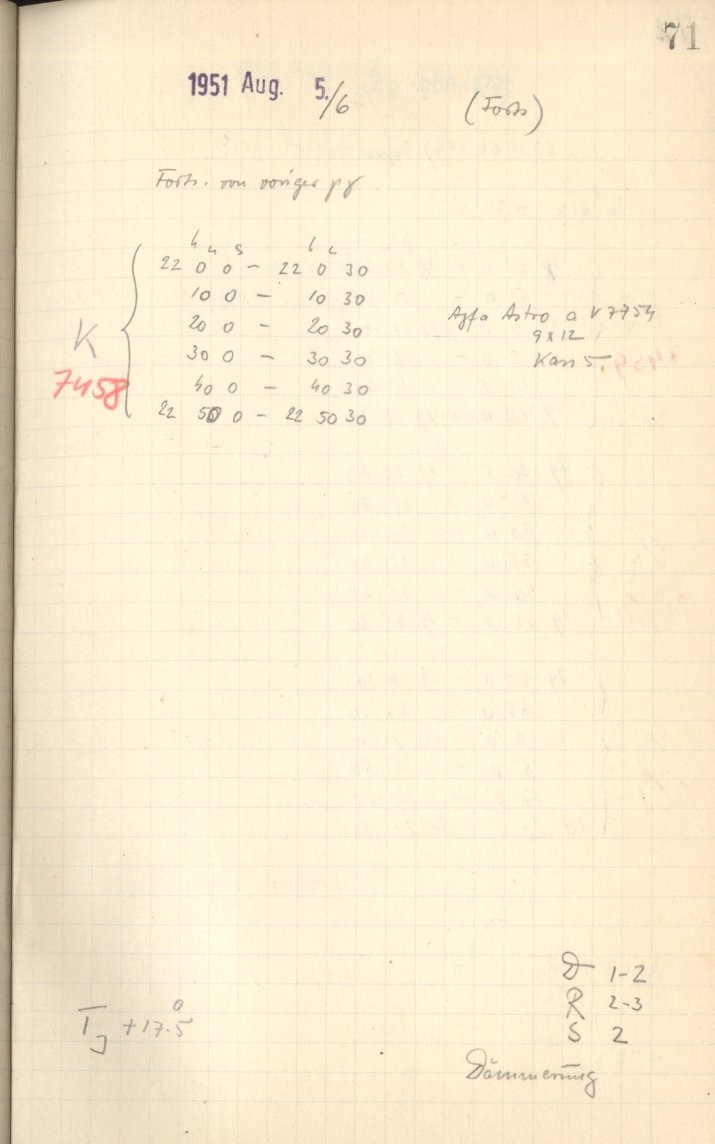 71
1951 Aug. 5./6 (Forts)
Forts. von voriger pg
h m s h m
22 0 0 – 22 0 30
10 0 – 10 30
20 0 – 20 30
30 0 – 30 30
40 0 – 40 30
22 50 0 – 22 50 30
K
7458
Agfa Astro a V7754
9x12
Kass 5.
D 1-2
R 2-3
S 2
TJ +17.5°
Dämmerung